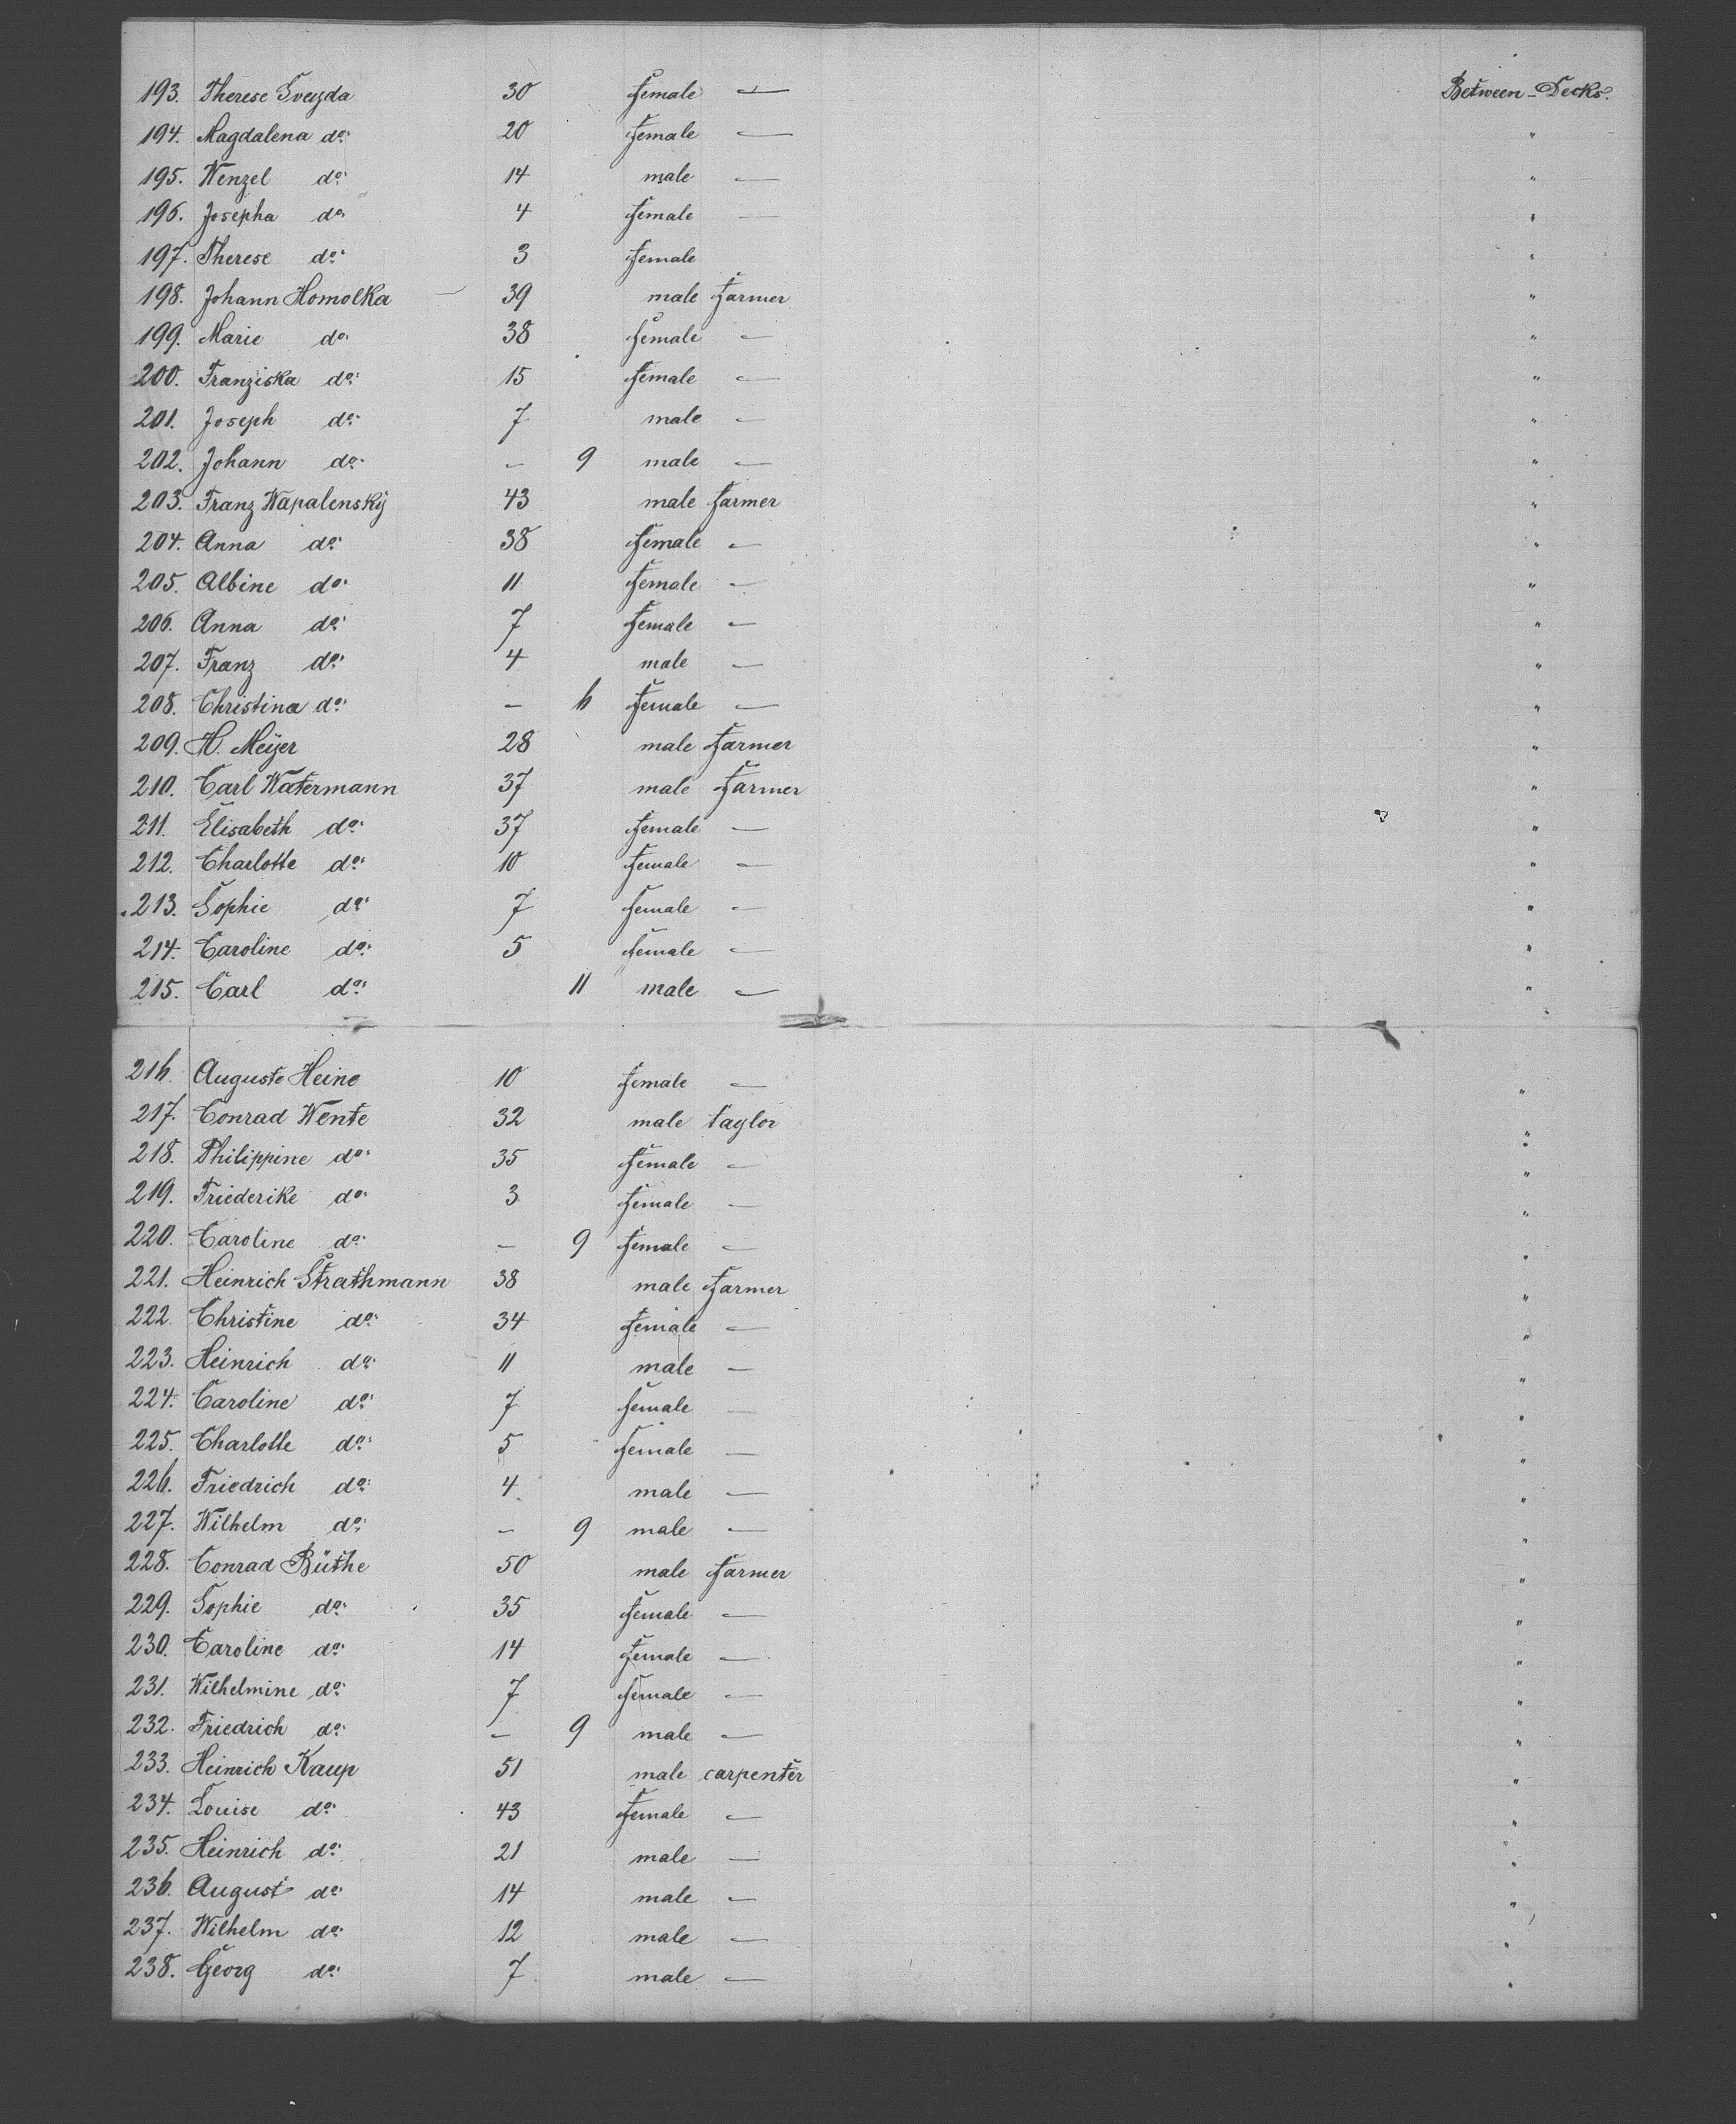 193. Therese Svezda 30 female — Between-Decks.
194. Magdalena do. 20 female — "
195. Wenzel do. 14 male — "
196. Josepha do. 4 female — "
197. Therese do. 3 female "
198. Johann Homolka — 39 male farmer "
199. Marie do. 38 female — "
200. Franziska do. 15 female — "
201. Joseph do. 7 male — "
202. Johann do. - 9 male — "
203. Franz Wapalensky 43 male farmer "
204. Anna do. 38 female — "
205. Albine do. 11 female — "
206. Anna do. 7 female — "
207. Franz do. 4 male — "
208. Christina do. - 6 female — "
209. H. Meyer 28 male farmer "
210. Carl Watermann 37 male farmer "
211. Elisabeth do. 37 female — "
212. Charlotte do. 10 female — "
213. Sophie do. 7 female — "
214. Caroline do. 5 female — "
215. Carl do. 11 male — "
216. Auguste Heine 10 female — "
217. Conrad Wente 32 male taylor "
218. Philippine do. 35 female — "
219. Friederike do. 3 female — "
220. Caroline do. - 9 female — "
221. Heinrich Strathmann 38 male farmer "
222. Christine do. 34 female — "
223. Heinrich do. 11 male — "
224. Caroline do. 7 female — "
225. Charlotte do. 5 female — "
226. Friedrich do. 4 male — "
227. Wilhelm do. - 9 male — "
228. Conrad Büthe 50 male farmer "
229. Sophie do. 35 female — "
230. Caroline do. 14 female — "
231. Wilhelmine do. 7 female — "
232. Friedrich do. - 9 male — "
233. Heinrich Kaup 51 male carpenter "
234. Louise do. 43 female — "
235. Heinrich do. 21 male — "
236. August do. 14 male — "
237. Wilhelm do. 12 male — "
238. Georg do. 7 male — "